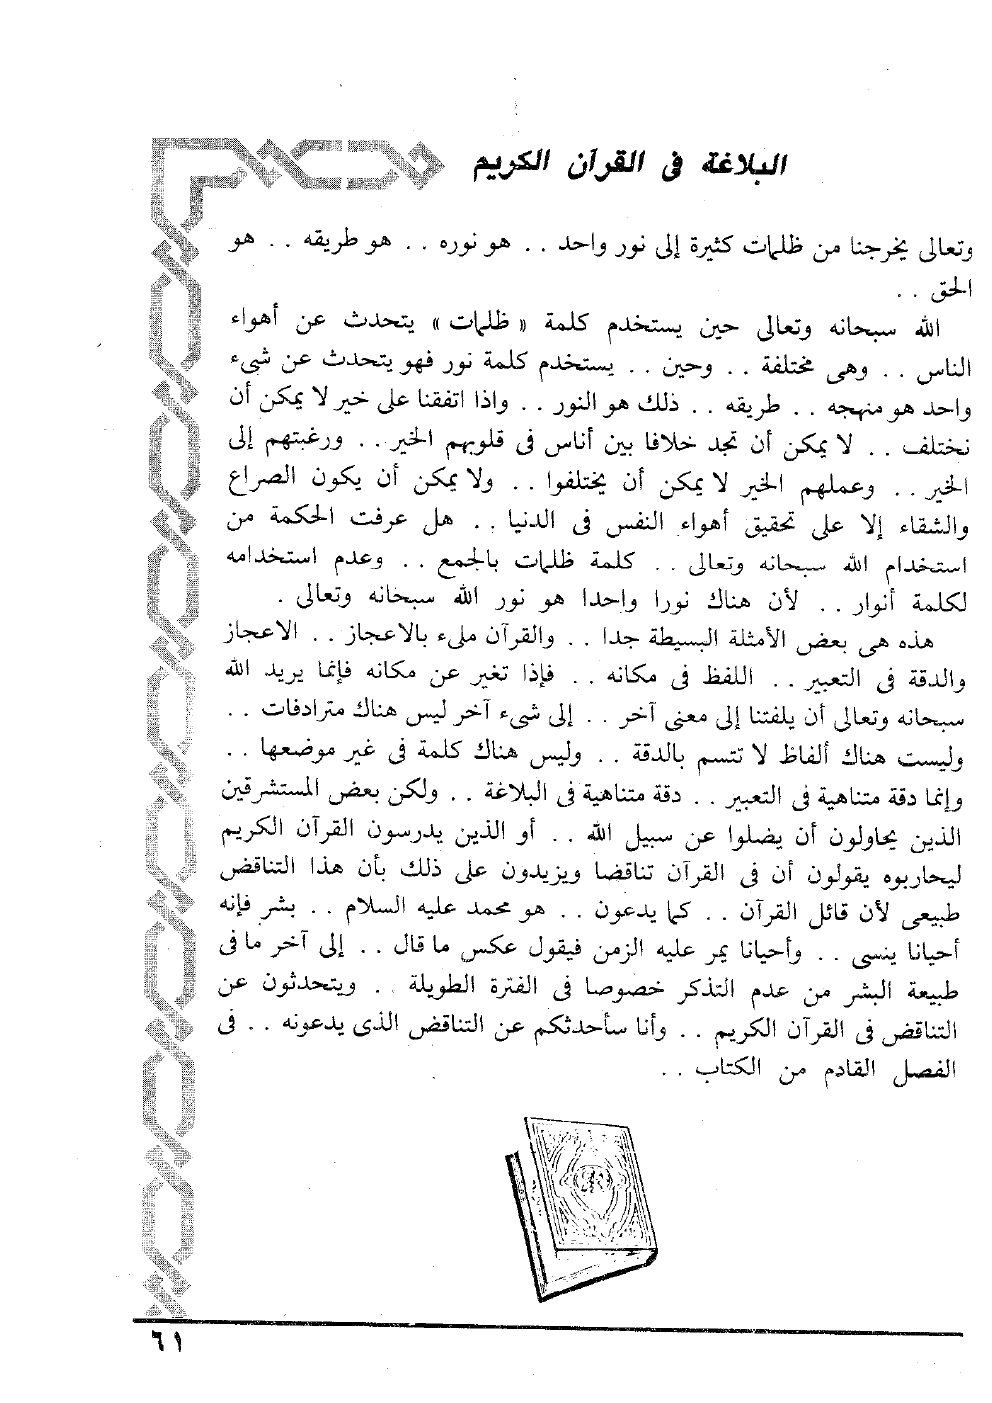 البلاغة فى القرآن الكريم
وتعالى يخرجنا من ظلمات كثيرة إلى نور واحد . . هو نوره . . هو طريقه . . هو
الحق . .
الله سبحانه وتعالى حين يستخدم كلمة « ظلمات » يتحدث عن أهواء
الناس . . وهى مختلفة . . وحين . . يستخدم كلمة نور فهو يتحدث عن شىء
واحد هو منهجه . . طريقه . . ذلك هو النور . . واذا اتفقنا على خير لا يمكن أن
نختلف . . لا يمكن أن تجد خلافا بين أناس فى قلوبهم الخير . . ورغبتهم إلى
الخير . . وعملهم الخير لا يمكن أن يختلفوا . . ولا يمكن أن يكون الصراع
والشقاء إلا على تحقيق أهواء النفس فى الدنيا . . هل عرفت الحكمة من
استخدام الله سبحانه وتعالى . . كلمة ظلمات بالجمع . . وعدم استخدامه
لكلمة أنوار . . لأن هناك نورا واحدا هو نور الله سبحانه وتعالى .
هذه هى بعض الأمثلة البسيطة جدا . . والقرآن ملىء بالاعجاز . . الاعجاز
والدقة فى التعبير . . اللفظ فى مكانه . . فإذا تغير عن مكانه فإنما يريد الله
سبحانه وتعالى أن يلفتنا إلى معنى آخر . . إلى شىء آخر ليس هناك مترادفات . .
وليست هناك ألفاظ لا تتسم بالدقة . . وليس هناك كلمة فى غير موضعها . .
وإنما دقة متناهية فى التعبير . . دقة متناهية فى البلاغة . . ولكن بعض المستشرقين
الذين يحاولون أن يضلوا عن سبيل الله . . أو الذين يدرسون القرآن الكريم
ليحاربوه يقولون أن فى القرآن تناقضا ويزيدون على ذلك بأن هذا التناقض
طبيعى لأن قائل القرآن . . كما يدعون . . هو محمد عليه السلام . . بشر فإنه
أحيانا ينسى . . وأحيانا يمر عليه الزمن فيقول عكس ما قال . . إلى آخر ما فى
طبيعة البشر من عدم التذكر خصوصا فى الفترة الطويلة . . ويتحدثون عن
التناقض فى القرآن الكريم . . وأنا سأحدثكم عن التناقض الذى يدعونه . . فى
الفصل القادم من الكتاب . .
٦١